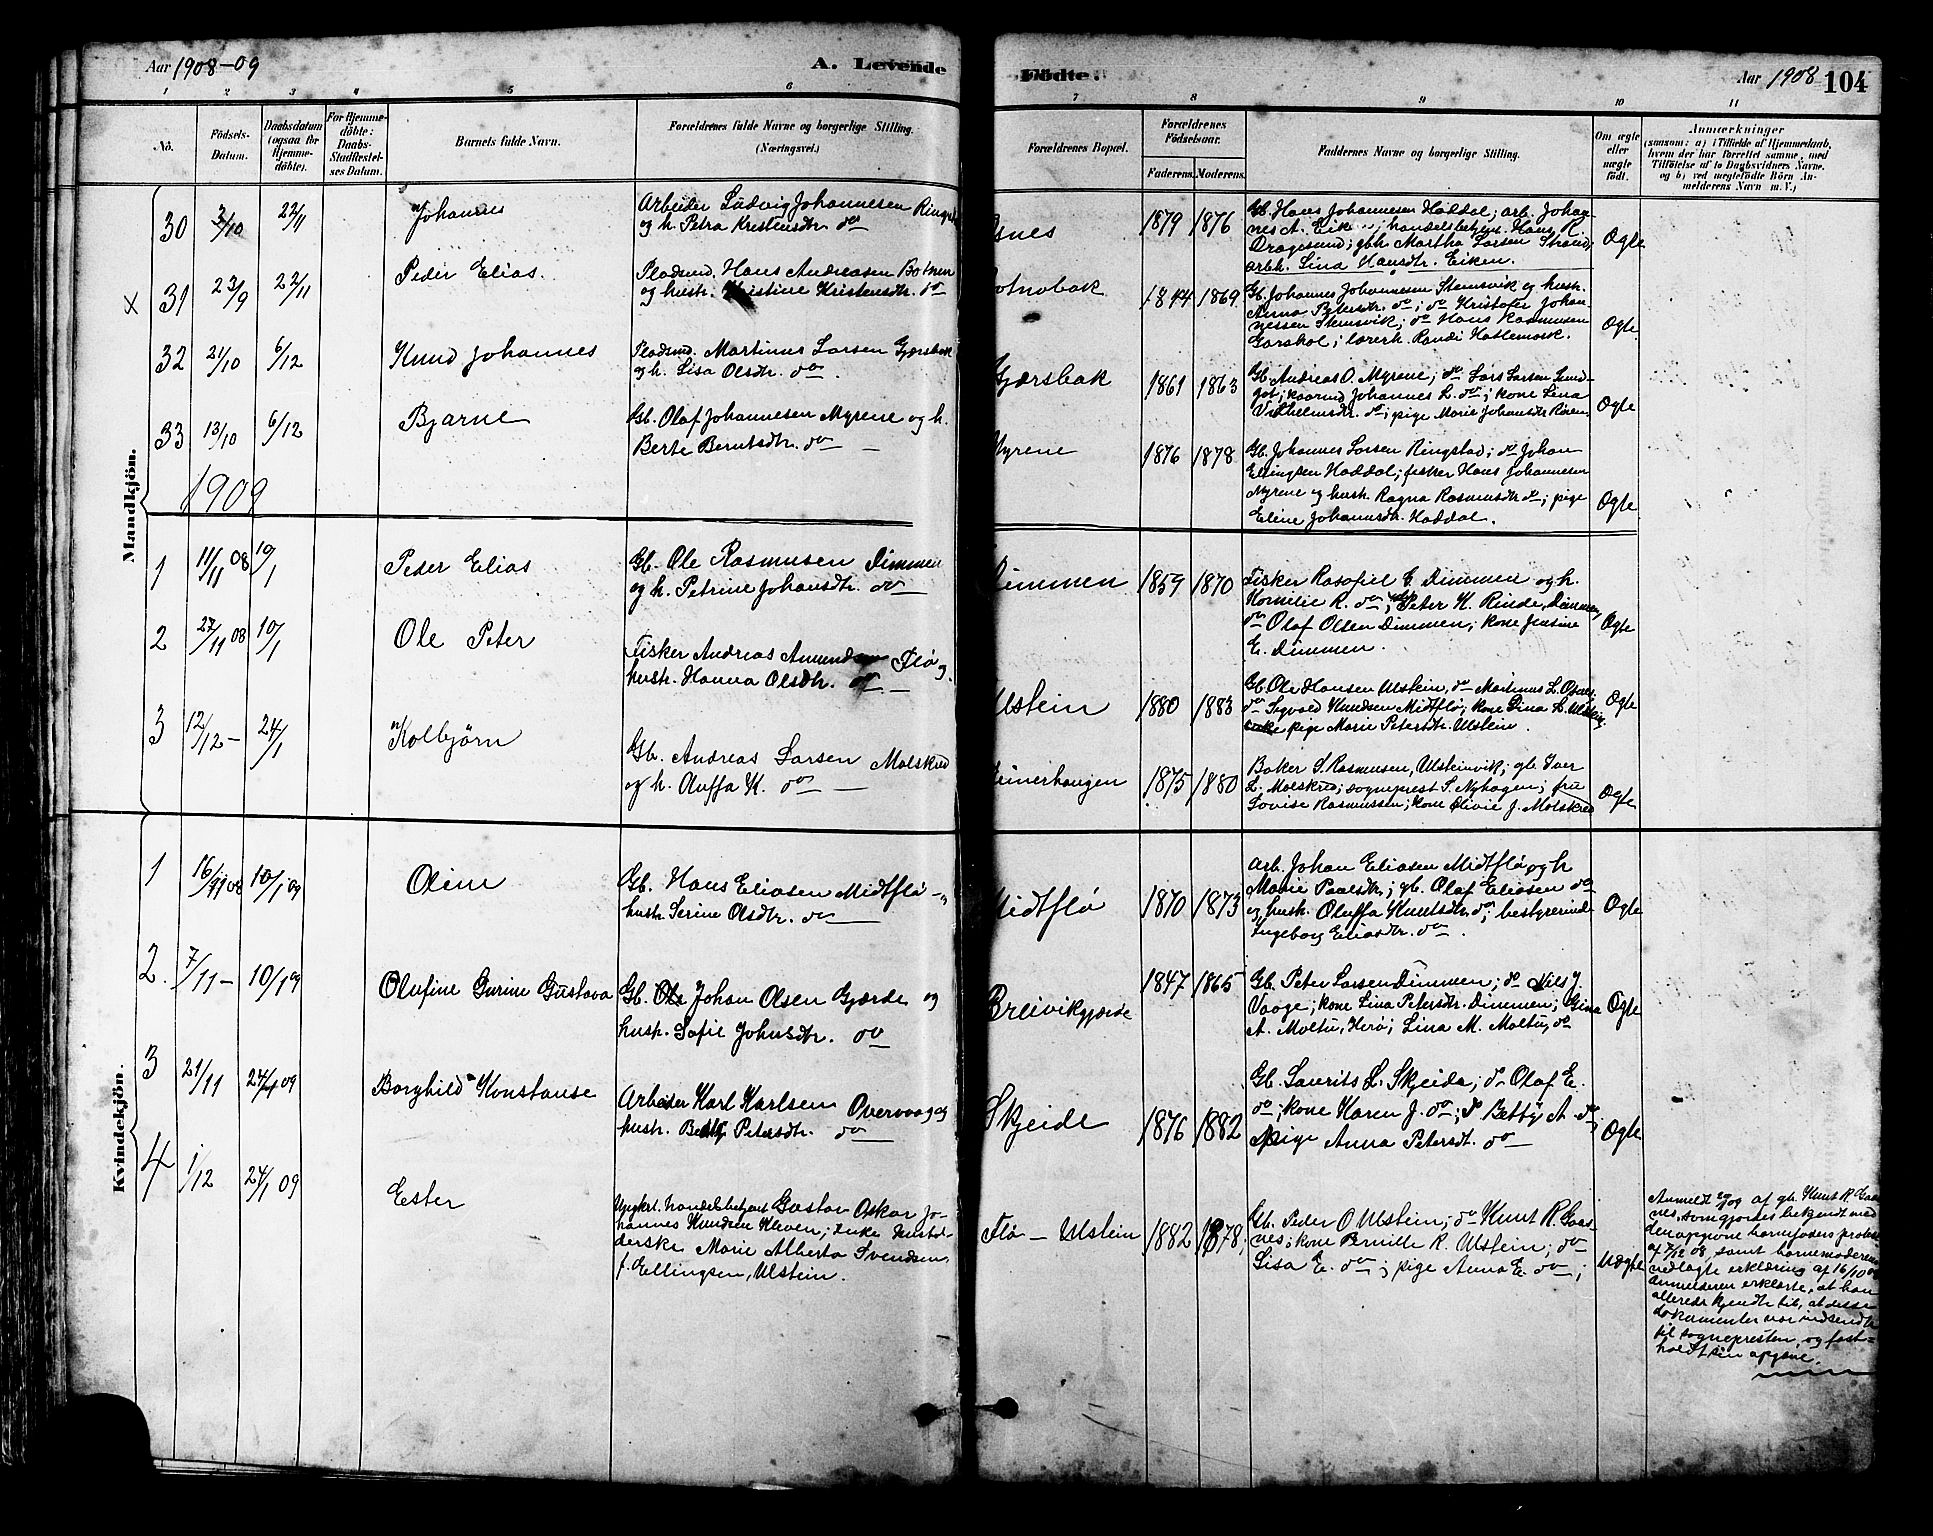 Aar 1908-09
A. Levende
Födte.
Aar 1908 104
1 2 3 4 5 6
7 8 9 10 11
No.
Födsels-Datum.
Daabsdatum (ogsaa for Hjemmedöbte).
For Hjemmedöbte: Daabs-Stadfæstelses Datum.
Barnets fulde Navn.
Forældrenes fulde Navne og borgerlige Stilling.
(Næringsvei.)
Forældrenes Bopæl.
Forældrenes Födselsaar.
Faderens. Moderens.
Faddernes Navne og borgerlige Stilling.
Om ægte eller uægte födt.
Anmærkninger
(saasom: a) i Tilfælde af Hjemmedaab,
hvem der har forrettet samme, med
Tilföielse af to Daabsvidners Navne,
og b) ved uægtefödte Börn Anmelderens Navn m. V.)
Mandkjön.
30 3/10 22/11 Johannes
Arbeider Ludvig Johannesen
og h. Petra Kristensdtr. do
Osnes 1879 1876
Gb. Hans Johannesen Haddal; arb. Johan-
nes A. Eik; handelsbetjent Hans K.
Dragesund; gbh. Martha Larsen Strand;
arbh. Lina Hansdtr. Eiken.
Ægte
X 31 23/9 22/11 Peder Elias.
Pladsmd. Hans Andreasen Botnen
og hustr. Kristine Kristensdtr. do
Botnebak 1844 1869
Gb. Johannes Johannesen Stemsvik og hustr.
Anna Petersdtr. do; do Kristofer Johan-
nessen Stemsvik; do Hans Rasmussen
Garshol; lærerh. Randi Hatlemark.
Ægte
32 21/10 6/12 Knud Johannes
Pladsmd. Martinus Larsen Gjærsbak
og h. Lisa Olsdtr. do
Gjærsbak 1861 1863
Gb. Andreas O. Myrene; do Lars Larsen Lund-
got; kaarmd Johannes L. do; kone Lina
Vilhelmsdtr. do; pige Marie Johansdtr.
Ægte
33 13/10 6/12 Bjarne
Gb. Olaf Johannesen Myrene og h.
Berte Berntsdtr. do
Myrene 1876 1878
Gb. Johannes Larsen Ringstad; do Johan
Ellingsen Haddal; fisker Hans Johannesen
Myrene og hustr. Ragna Rasmusdtr. do; pige
Eline Johannsdtr. Haddal.
Ægte
1909
1 11/11 08 10/1 Peder Elias
Gb. Ole Rasmusen Dimmen
og h. Petrine Johansdtr. do
Dimmen 1859 1870
Fisker Rasmus E. Dimmen og h.
Kornelie R. do; Peter K. Rinde, Dimmen,
do Olaf Olsen Dimmen; kone Jensine
E. Dimmen.
Ægte
2 27/11 08 10/1 Ole Peter
Fisker Andreas Amundsen Flø og
hustr. Hanna Olsdtr. do
Ulstein 1880 1883
Gb. Ole Hansen Ulstein, do Martinus L. Osnes;
do Sigvald Knudsen Midtflø; kone Gina L. Ulstein;
pige Marie Petersdtr. Ulstein.
Ægte
3 12/12 - 24/1 Kolbjørn
Gb. Andreas Larsen Molskred
og h. Oluffa K. do
1875 1880
Baker S. Rasmusen, Ulsteinvik; gb. Iver
L. Molskred; sogneprest S. Nyhagen; fru
Lovise Rasmussen; kone Olivie J. Molskred
Ægte
Kvindekjön.
1 16/11 08 10/1 09 Oline
Gb. Hans Eliasen Midtflø og
hustr. Serine Olsdtr. do
Midtflø 1870 1873
Arb. Johan Eliasen Midtflø og h
Marie Paulsdtr.; gb. Olaf Eliasen do
og hustr. Oluffa Knutsdtr. do; bestyrerinde
Ingeborg Eliasdtr. do.
Ægte
2. 7/11 - 10/1 09 Olufine Gurine Gustava
Gb. Johan Olsen Gjærde og
hustr. Sofie Johnsdtr. do
Breivikgjærde 1847 1865
Gb. Peter Larsen Dimmen; do Nils J.
Vaage; kone Lina Petersdtr. Dimmen; Gina
A. Moltu, Herø; Lina M. Moltu, do
Ægte
3 21/11 24/1 09 Borghild Konstanse
Arbeider Karl Karlsen Overvaag og
hustr. Betty Petersdtr. do
Skjeide 1876 1882
Gb. Laurits L. Skjeide; do Olaf E.
do; kone Karen J. do; do Betty A. do;
pige Anna Petersdt. do
Ægte
4 1/12 24/1 09 Ester
Ugkrl. handelsbetjent Gustav Oskar Jo-
hannes Knudsen Kleven; Enke Hushol-
derske Marie Alberta Svendsen
f. Ellingsen, Ulstein.
Flø - Ulstein 1882 1878;
Gb. Peder O Ulstein; do Knut R. Gaas-
nes; kone Bernille R. Ulstein; do
Lisa E. do; pige Anna E. do;
Uægte
Anmeldt af gb. Knut R. Gaas-
nes, som gjordes bekjendt med
den opgivne barnefaders protest
af 7/12 08, samt barnemoderens
vedlagte erklæring af 16/10 08
Anmelderen erklærte, at han
allerede kjendte til, at disse
dokumenter var indsendt
til sognepresten, og fast-
holdt sin opgave.